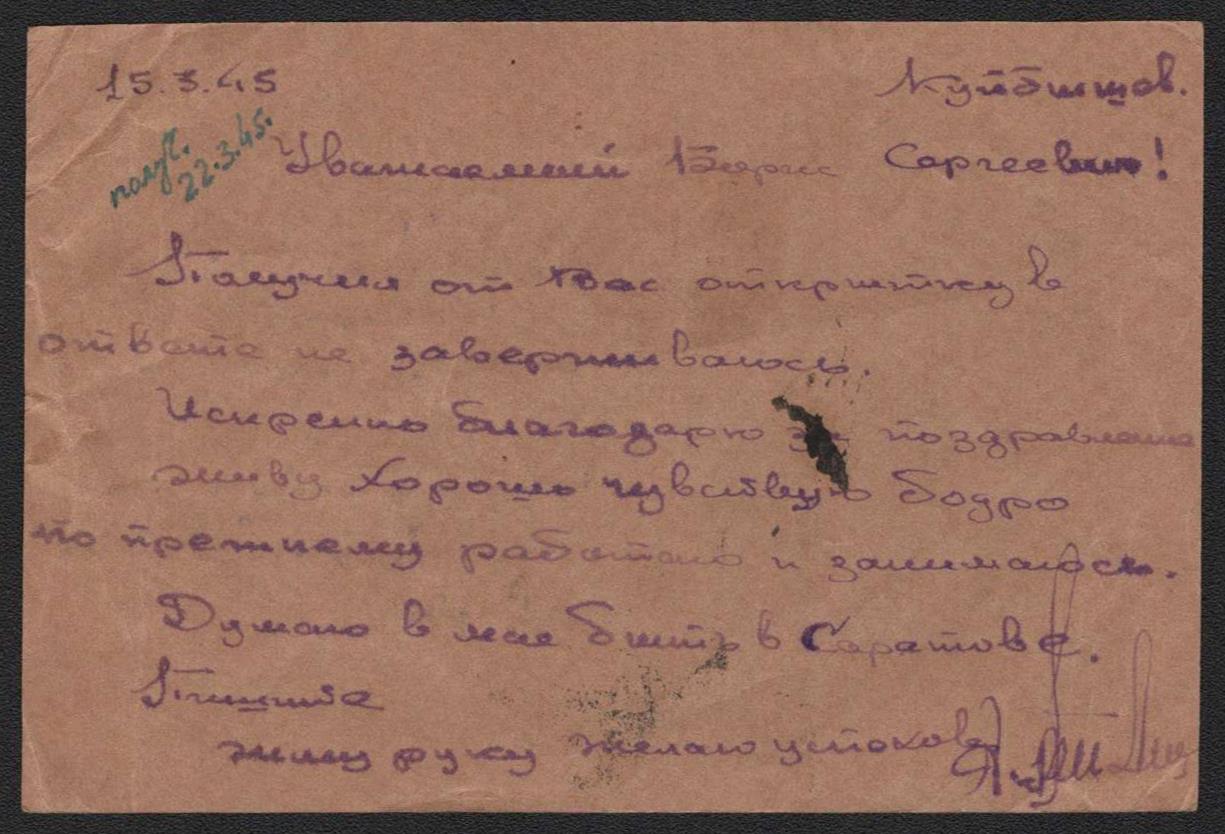 15.3.45
Куйбишов.
получ.
22.3.45.
Уважаемий Борис Сергеевич!
Получил от Вас откритку в
ответе не завершиваюсь.
Искренно благодарю за поздравление
живу хорошо чувствую бодро
по прежнему работаю и занимаюсь.
Думаю в мае бить в Саратове.
Пишите
жму руку желаю успохов